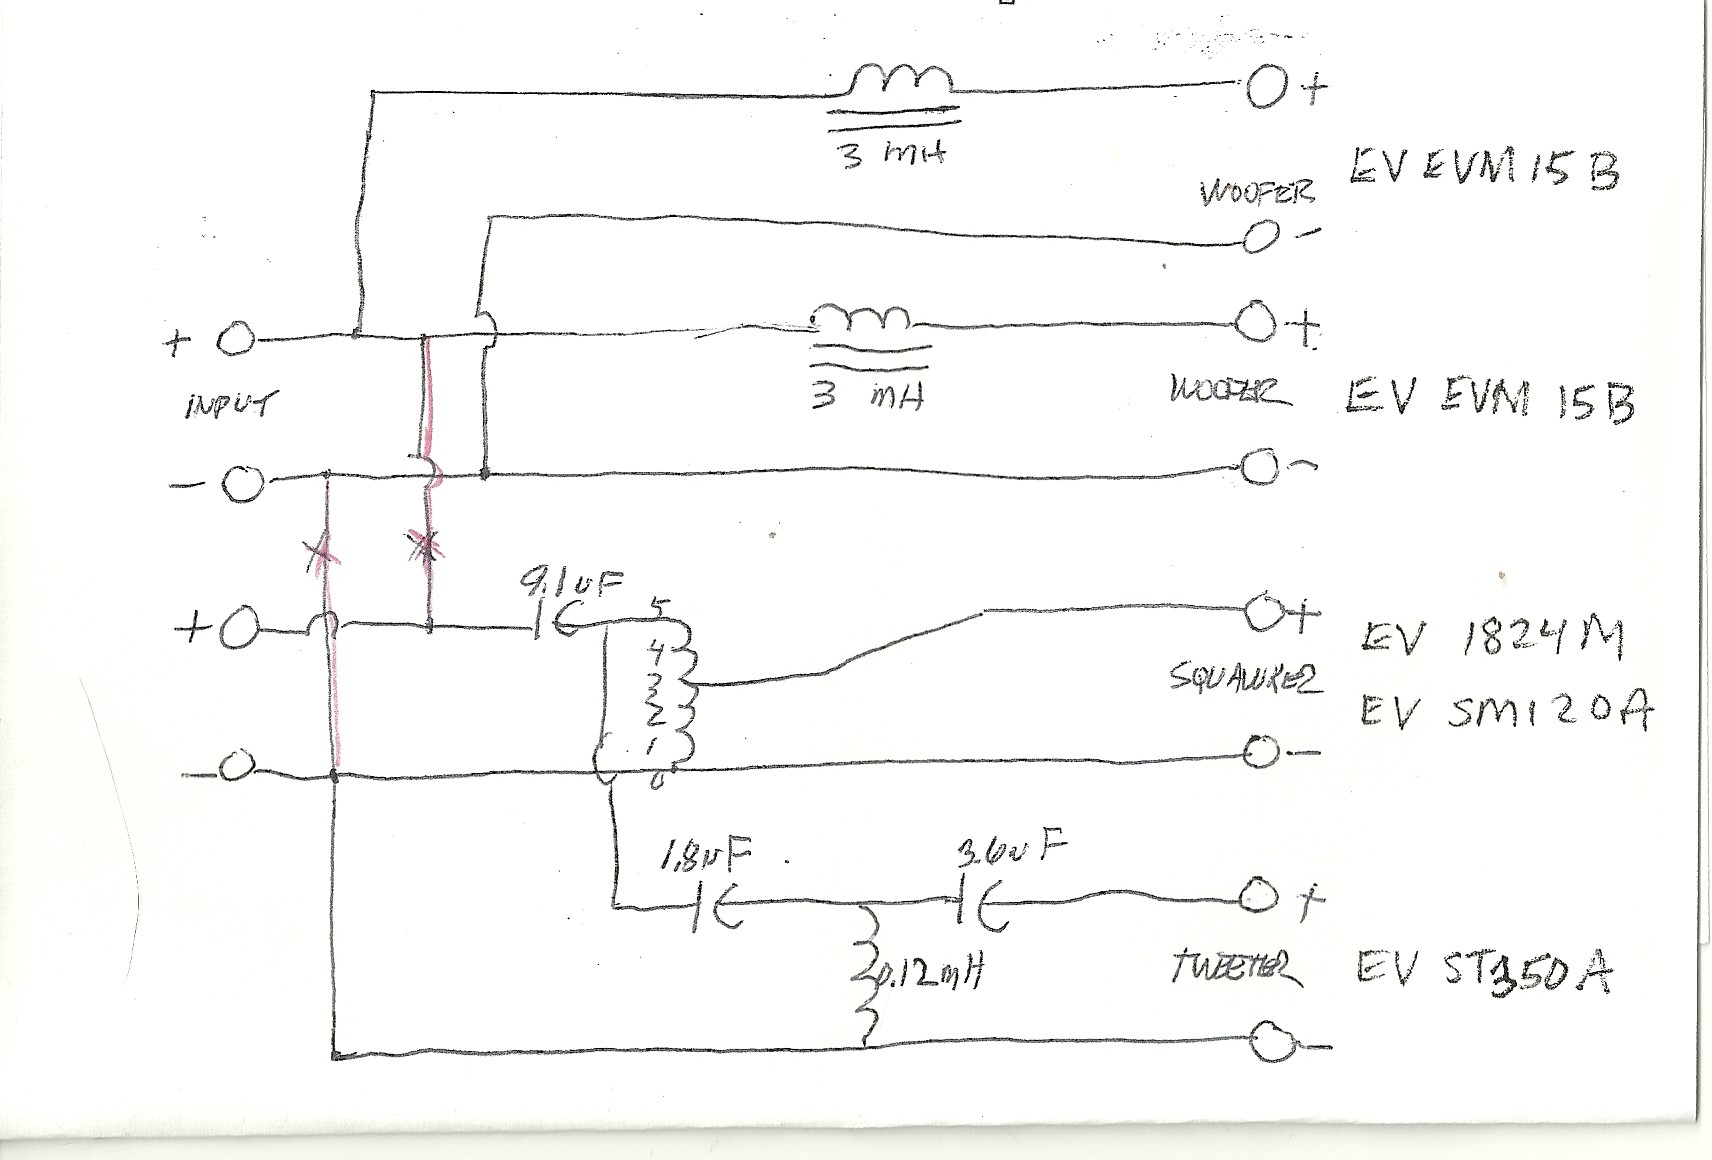 +
3 mH
WOOFER
EV EVM 15 B
-
+
INPUT
+
3 mH
WOOFER
EV EVM 15B
-
-
+
9.1uF
5
4
3
2
1
0
+
SQUAWKER
EV 1824M
EV SM120A
-
-
1.8uF
3.6uF
+
0.12mH
TWEETER
EV ST350.A
-